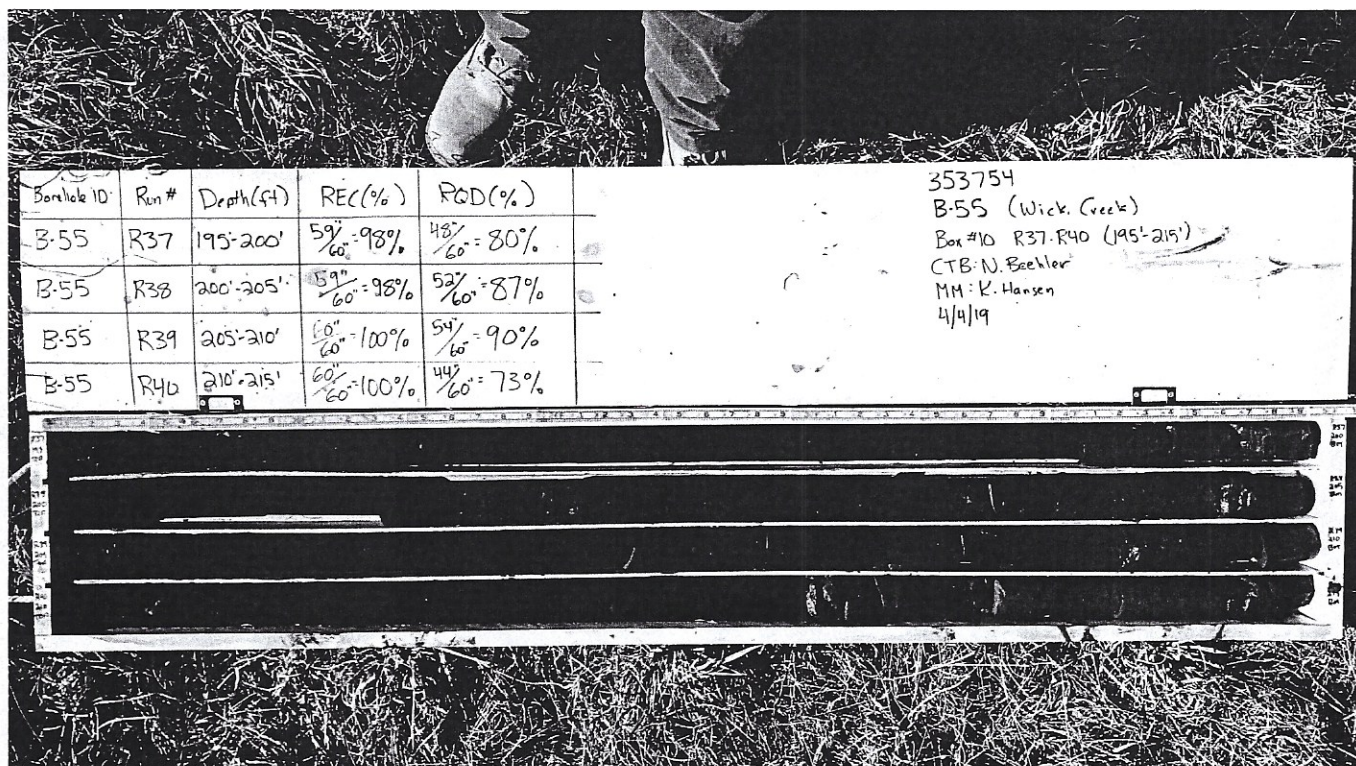 Borehole ID Run # Depth (ft) REC (%) RQD (%)
B-55 R37 195'-200' 59"/60" = 98% 48"/60" = 80%
B-55 R38 200'-205' 59"/60" = 98% 52"/60" = 87%
B-55 R39 205-210' 60"/60" = 100% 54"/60" = 90%
B-55 R40 210'-215' 60"/60" = 100% 44"/60" = 73%
353754
B-55 (Wick. Creek)
Box #10 R37-R40 (195'-215')
CTB: N. Beehler
MM: K. Hansen
4/4/19